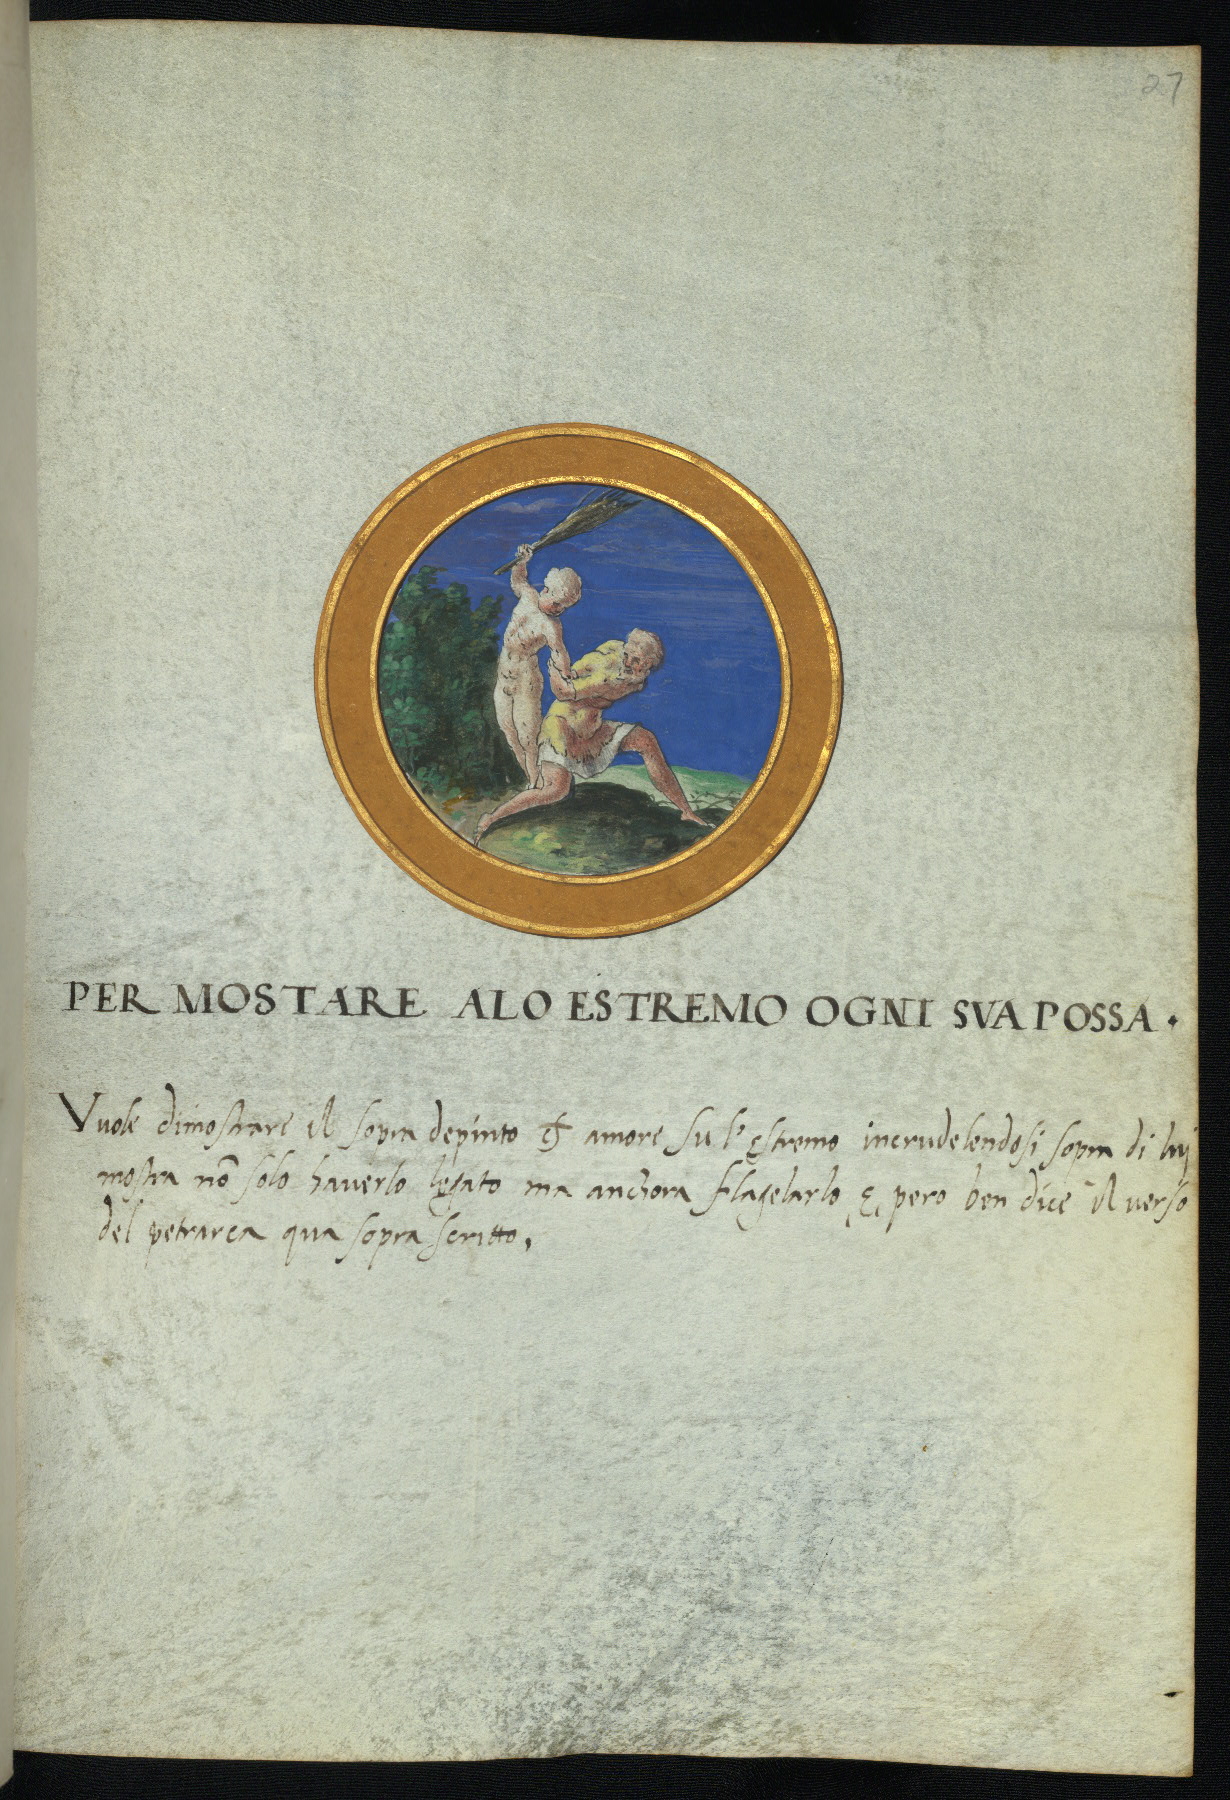 27
PER MOSTARE ALO ESTREMO OGNI SVA POSSA.
Vuole dimostrare il sopra depinto amore su l' estremo incrudelendosi sopra di lui
mostra nõ solo hauerlo legato ma anchora flagelarlo & pero ben dice il verso
del petrarca qua sopra scritto,